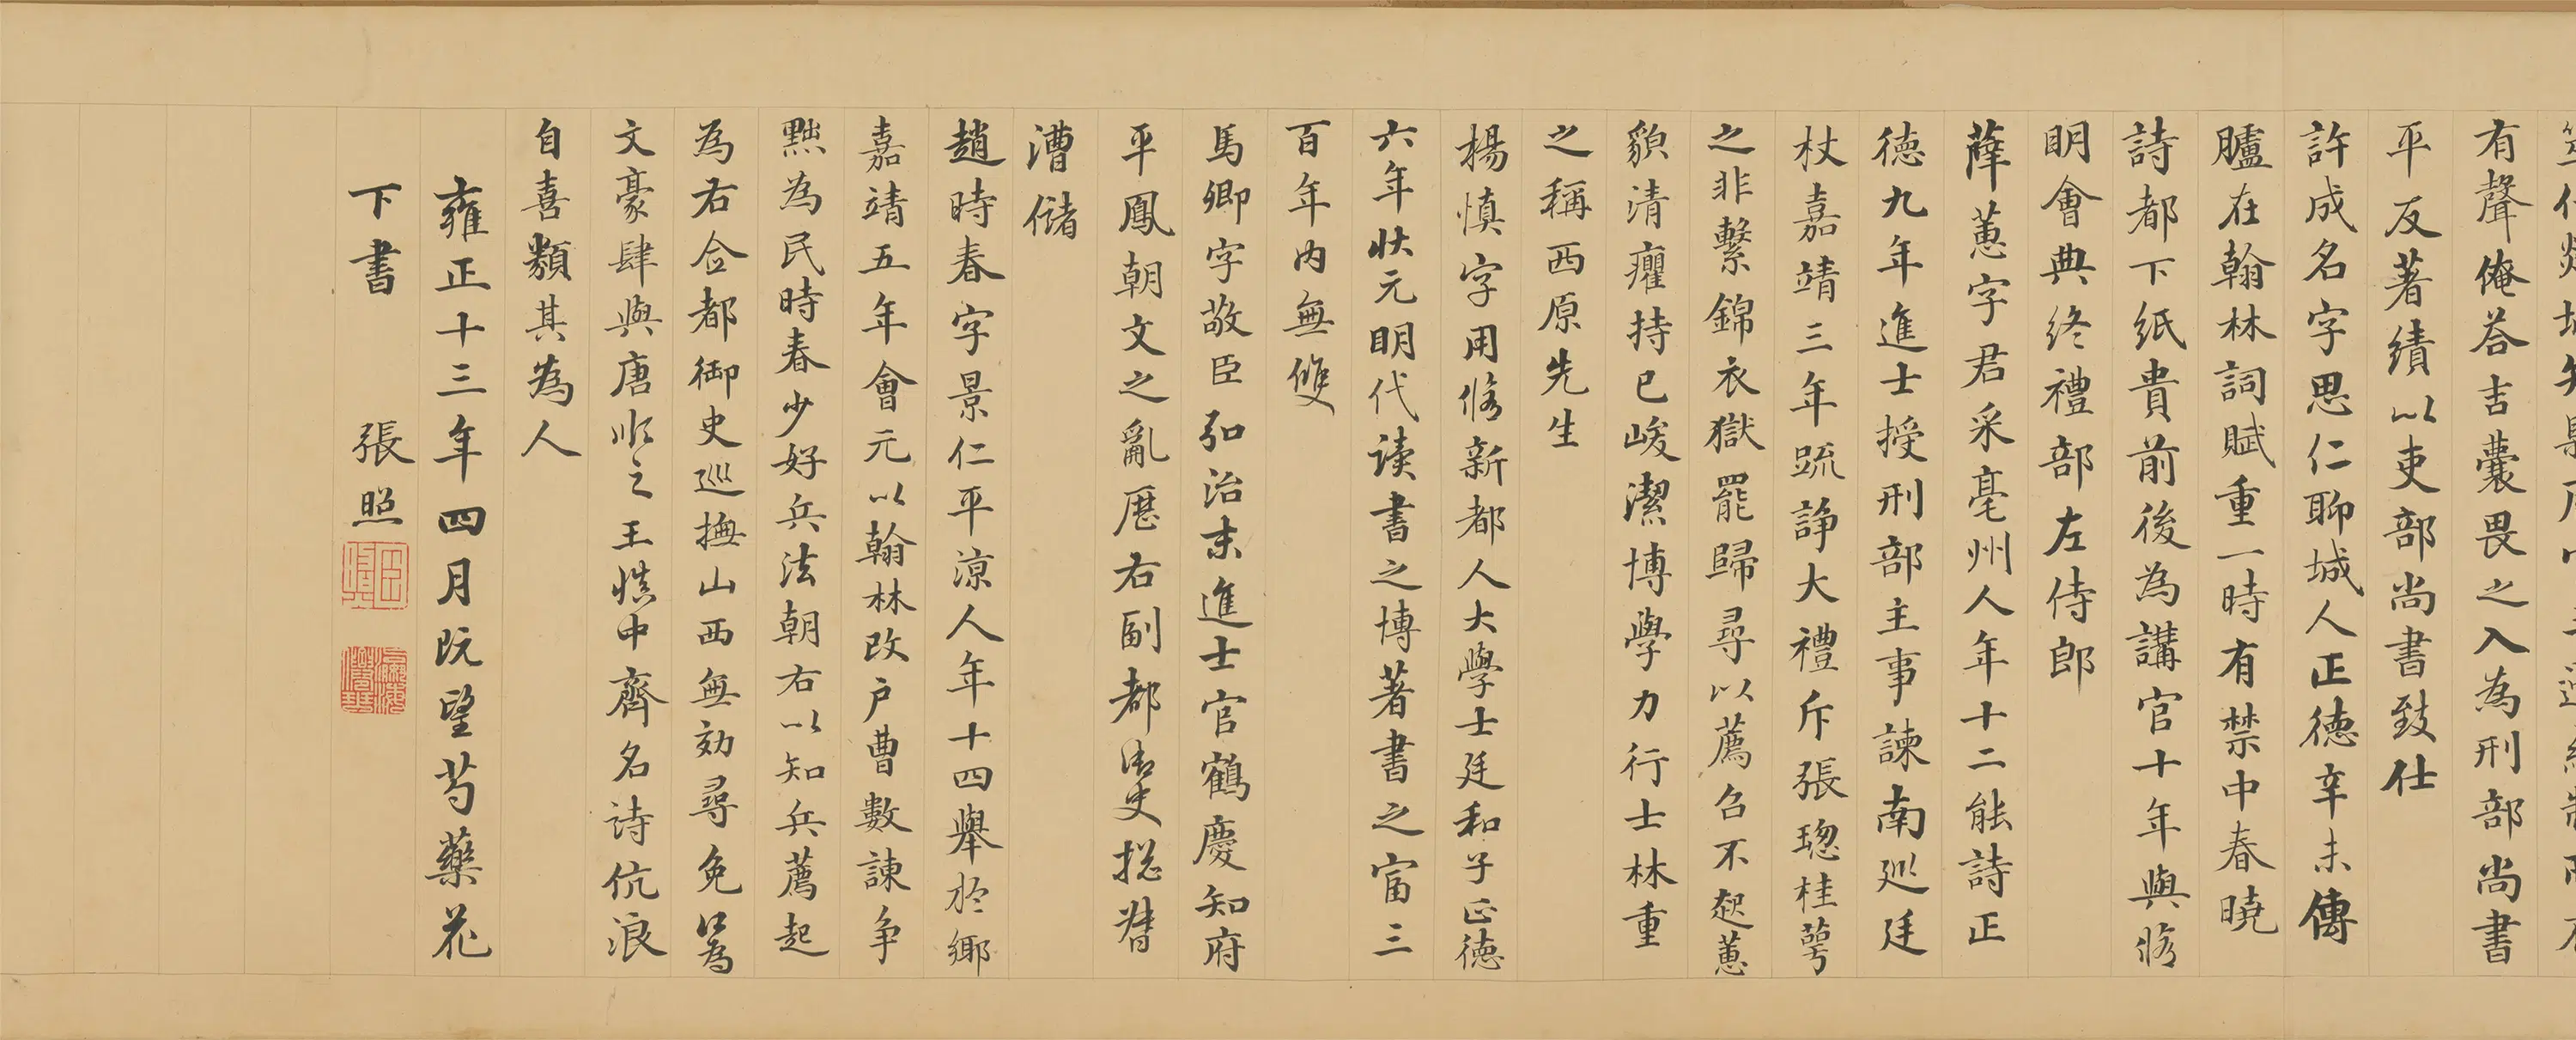 有聲俺荅吉囊畏之入為刑部尚書
平反著績以吏部尚書致仕
許成名字思仁聊城人正德辛未傳
臚在翰林詞賦重一時有禁中春曉
詩都下紙貴前後為講官十年與脩
明會典終禮部左侍郎
薛蕙字君采亳州人年十二能詩正
德九年進士授刑部主事諫南巡廷
杖嘉靖三年疏諍大禮斥張璁桂萼
之非繫錦衣獄罷歸尋以薦召不起蕙
貌清癯持己峻潔博學力行士林重
之稱西原先生
楊慎字用脩新都人大學士廷和子正德
六年狀元明代读書之博著書之富三
百年內無雙
馬卿字敬臣弘治末進士官鶴慶知府
平鳳朝文之亂歷右副都御史揔督
漕儲
趙時春字景仁平涼人年十四舉於鄉
嘉靖五年會元以翰林改户曹數諫争
黜為民時春少好兵法朝右以知兵薦起
為右僉都御史巡撫山西無効尋免罷為
文豪肆與唐順之王慎中齊名詩伉浪
自喜類其為人
雍正十三年四月既望芍藥花
下書 張照